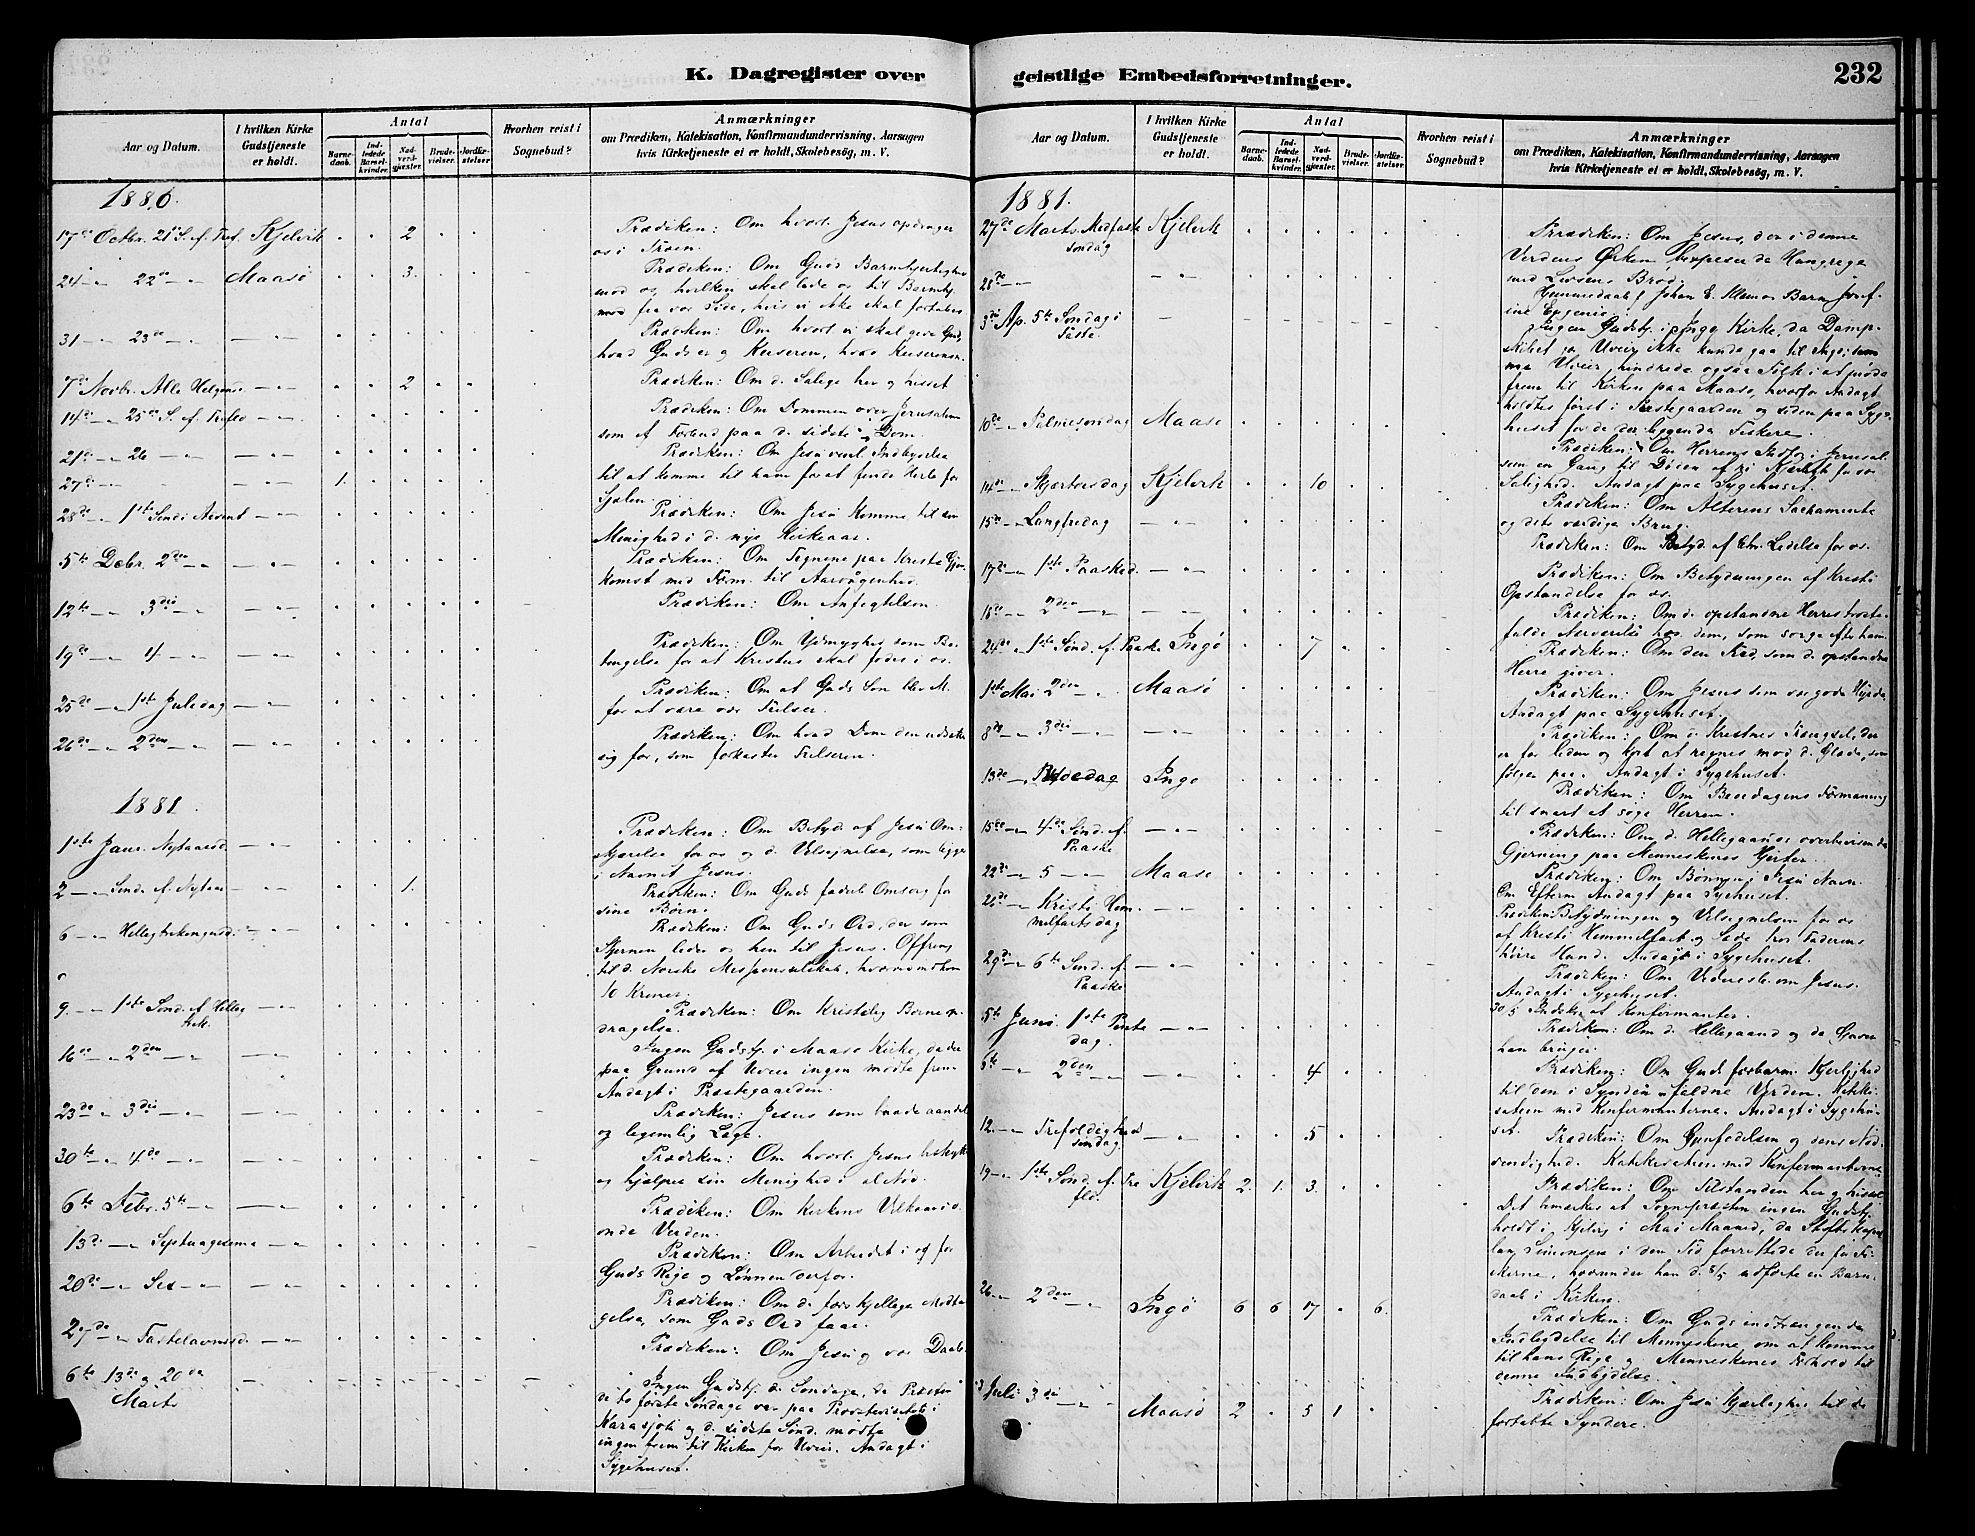 K. Dagregister over geistlige Embedsforretninger.
232
Aar og Datum.
I hvilken Kirke Gudstjeneste er holdt.
Antal
Barnedaab.
Indledede Barselkvinder.
Nadverdgjæster.
Brudevielser.
Jordfæstelser.
Hvorhen reist i Sognebud?
Anmærkninger
om Prædiken, Katekisation, Konfirmandundervisning, Aarsagen
hvis Kirketjeneste ei er holdt, Skolebesög, m. V.
1880
17de Octbr. 21 S. f. Tref. Kjelvik 2 Prædiken: Om hvorl. Jesus opdrager
os i Troen.
24 22de Maasø 3. Prædiken: Om Guds Barmhjertighed
mod os, hvilken skal lede os til Barmhj.
mod fra vor Side, hvis vi ikke skal fortabes
31 23de Prædiken: Om hvorl. vi skal give Gud,
hvad Guds er og Keiseren, hvad Keiserens er.
7de Novbr. Alle Helgens 2 Prædiken: Om d. Salige her og hisset
14de 25de S. f. Trefol Prædiken: Om Dommen over Jerusalem
som et Forbud paa d. sidste Dom.
21de 26 Prædiken: Om Jesu venl. Indbydelse
til at komme til ham for at finde Hvile for
Sjælen.
27de 1.
28de 1ste Sond. i Advent Prædiken: Om Jesu Komme til sin
Menighed i d. nye Kirkeaar.
5te Decbr. 2den Prædiken: Om Tegnene paa Kristi Gjen-
komst med Form. til Aarvågenhed.
12te 3die Prædiken: Om Anfegtelsen.
19de 4 Prædiken: Om Ydmyghed som Be-
tingelse for at Kristus skal fødes i os.
25de 1ste Juledag Prædiken: Om at Guds Søn blev M.
for at være vor Frelser.
26de 2den Prædiken: Om hvad Dom den udsætter
sig for, som forkaster Frelseren.
1881.
1ste Janr. Nytaarsd. Prædiken: Om Betyd. af Jesu Om-
skjærelse for os og d. Velsignelse, som ligger
i Navnet Jesus.
2 Sond. f. Nytaar 1. Prædiken: Om Guds faderl. Omsorg for
sine Børn.
6 Helligtrekongersd. Prædiken: Om Guds Ord, der som
Stjernen leder os hen til Jesus. Offring
til d. Norske Missionsselskab, hvorved indkom
10 Kroner.
9. 1ste Sond. ef. Hellig
trek. Prædiken: Om Kristelig Børneop-
dragelse.
16de 2den Ingen Gudstj. i Maasø Kirke, da der
paa Grund af Uveir ingen mødte frem
Andagt i Præstegaarden.
23de 3die Prædiken: Jesus som baade aandel.
og legemlig Læge.
30te 4de Prædiken: Om hvorl. Jesus beskytter
og hjælper sin Menighed i al Nød.
6te Febr. 5te Prædiken: Om Kirkens Velkaar i d.
onde Verden.
13de Septuagesima Prædiken: Om Arbeidet i og for
Guds Rige og Lønnen derfor.
20de Sex Prædiken: Om de forskjellige Modta-
gelse, som Guds Ord faar.
27de Fastelavnssd. Prædiken: Om Jesu og vor Daab.
6te 13de og 20de
Marts Ingen Gudstj. de Søndage, da Præsten
de to første Søndage var paa Provstevisitats i
Karasjok og d. sidste Sønd. mødte
ingen frem til Kirken for Uveir. Andagt i
Sygehuset.
Aar og Datum.
I hvilken Kirke Gudstjeneste er holdt.
Antal
Barnedaab.
Indledede Barselkvinder.
Nadverdgjæster.
Brudevielser.
Jordfæstelser.
Hvorhen reist i Sognebud?
Anmærkninger
om Prædiken, Katekisation, Konfirmandundervisning, Aarsagen
hvis Kirketjeneste ei er holdt, Skolebesög, m. V.
1881.
27de Marts Midfaste
søndag Kjelvik Prædiken: Om Jesus, der i denne
Verdens Ørken bespiser de Hungrige
med Livsens Brød.
28de Hjemmedaab f. Johan E. Barn Josef-
ine Eugenie.
3die Ap. 5te Søndag i
Faste Ingen Gudstj. i Ingø Kirke, da Damp-
skibet for Uveir ikke kunde gaa til Ingø; sam-
me Uveir hindrede ogsaa Folk i at møde
frem til Kirken paa Maasø, hvorfor Andagt
holdtes først i Præstegaarden og siden paa Syge-
huset for de der liggende Fiskere.
10de Palmesøndag Maasø Prædiken: Om Herrens Indtog i Jerusal.
som en Gang til Døden af Kjærlh. for vor
Salighed. Andagt paa Sygehuset.
14de Skjærtorsdag Kjelvik 10 Prædiken: Om Alterens Sacramente
og dets værdige Brug.
15de Langfredag Prædiken: Om Betyd. af Chr. Lidelse for os.
17de 1ste Paasked. Prædiken: Om Betydningen af Kristi
Opstandelse for os.
18de 2den Prædiken: Om d. opstandne Herres trøste-
fulde Nærværelse hos dem, som sørge efter ham.
24de 1ste Sønd. f. Paaske Ingø 7 Prædiken: Om den Fred, som d. opstandne
Herre giver.
1ste Mai 2den Maasø Prædiken: Om Jesus som vor gode Hyrde
Andagt paa Sygehuset.
8de 3die Prædiken: Om d. Kristnes Trængsel, der
er for liden og kort at regnes mod d. Glæde, som
følger paa. Andagt i Sygehuset.
13de Bededag Ingø Prædiken: Om Bededagens Formaning
til snart at søge Herren.
15de 4de Sønd. f.
Paaske Prædiken: Om d. Helligaands overbevisende
Gjerning paa Menneskenes Hjerter.
22de 5 Maasø Prædiken: Om Bønnen i Jesu Navn.
Om Efterm. Andagt paa Sygehuset.
26de Kristi Him-
melfartsdag Prædiken: Betydningen og Velsignelsen for os
af Kristi Himmelfart og Sæde hos Faderens
høire Haand. Andagt i Sygehuset.
29de 6te Sønd. f.
Paaske Prædiken: Om Vidnesb. om Jesus.
Andagt i Sygehuset.
30/5 Indskr. af Konfirmanter.
5te Juni 1ste Pintse
dag. Prædiken: Om d. Helligaand og de Gaver
han bringer.
6te 2den 4 Prædiken: Om Guds forbarm. Kjærlighed
til den i Synden faldne Verden. Kateki-
sation med Konfirmanterne. Andagt i Sygehu-
set.
12. Trefoldigheds
søndag 5 Prædiken: Om Gjenfødelsen og dens Nød-
vendighed. Katekisation med Konfirmanterne.
19 1ste Sønd. f. Tre
fol. Kjelvik 2. 1. 3. Prædiken: Om Tilstanden her og hisset
Det bemærkes at Sognepræsten ingen Gudstj.
holdt i Kjelvig i Mai Maaned, da Stiftskapel-
lan Simonsen i den Tid forrettede der for Fi-
skerne, hvorunder han d. 8/5 udførte en Barne-
daab i Kirken.
26 2den Ingø 6 6 17 6. Prædiken: Om Guds indtrængende
Indbydelse til Menneskene om at komme
til hans Rige og Menneskenes Forhold til
denne Indbydelse.
3 Juli 3die Maasø 2 5 1 Prædiken: Om Jesu Kjærlighed til de
fortabte Syndere.